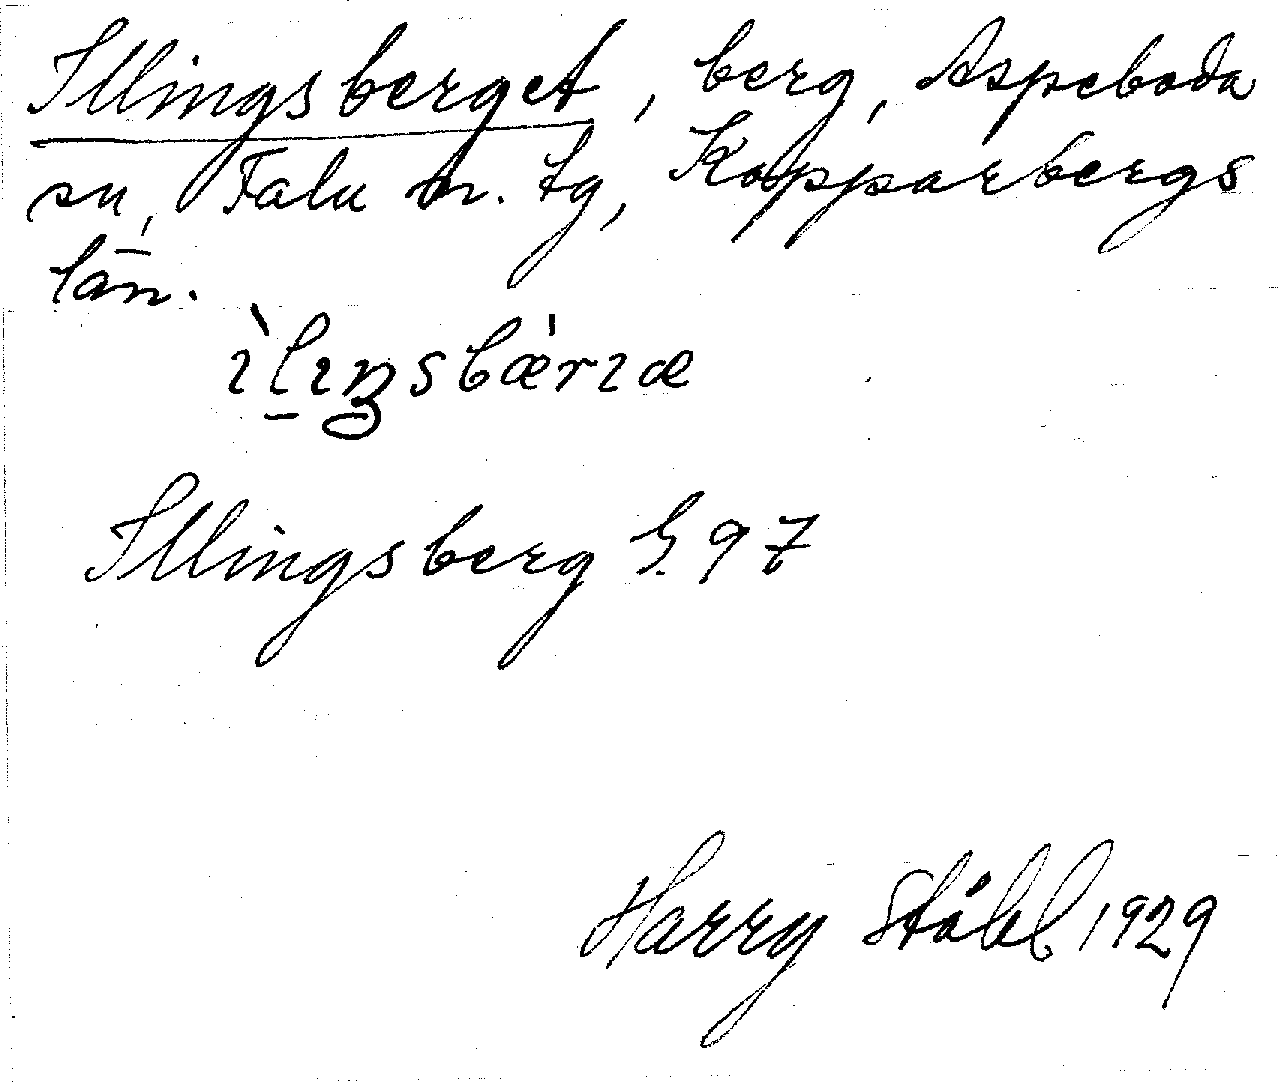 Illingsberget, berg, Aspeboda
sn, Falu n. tg, Kopparbergs
län.
Illingsberg G. 97
Harry Ståhl 1929